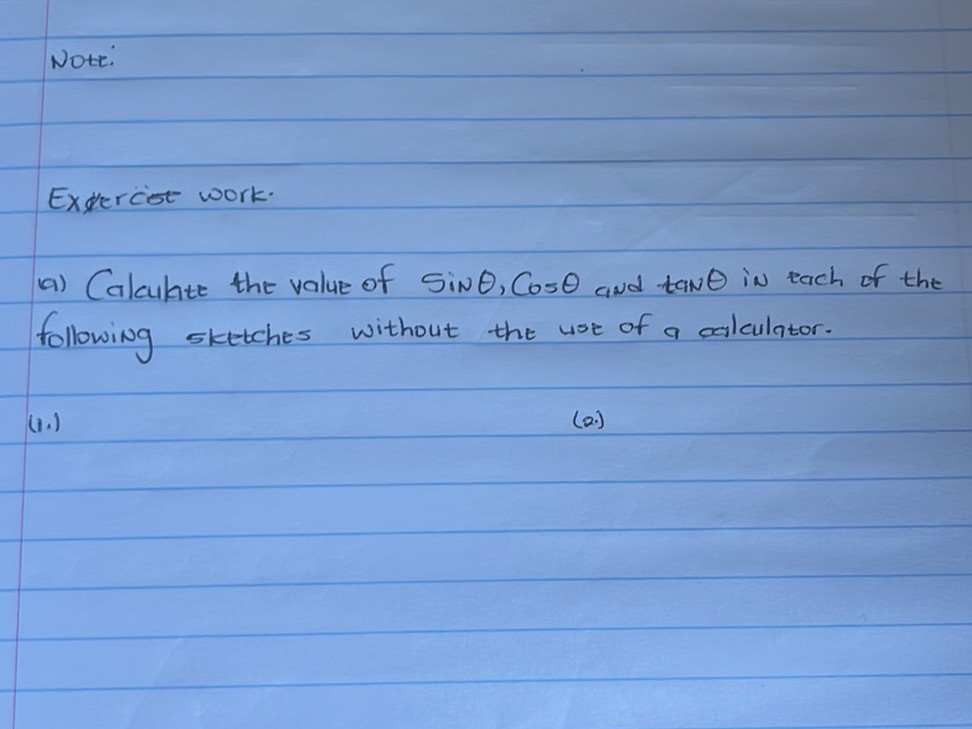 Note:
Exercise work.
a) Calculate the value of Sinθ, Cosθ and tanθ in each of the
following sketches without the use of a calculator.
(1.) (2.)